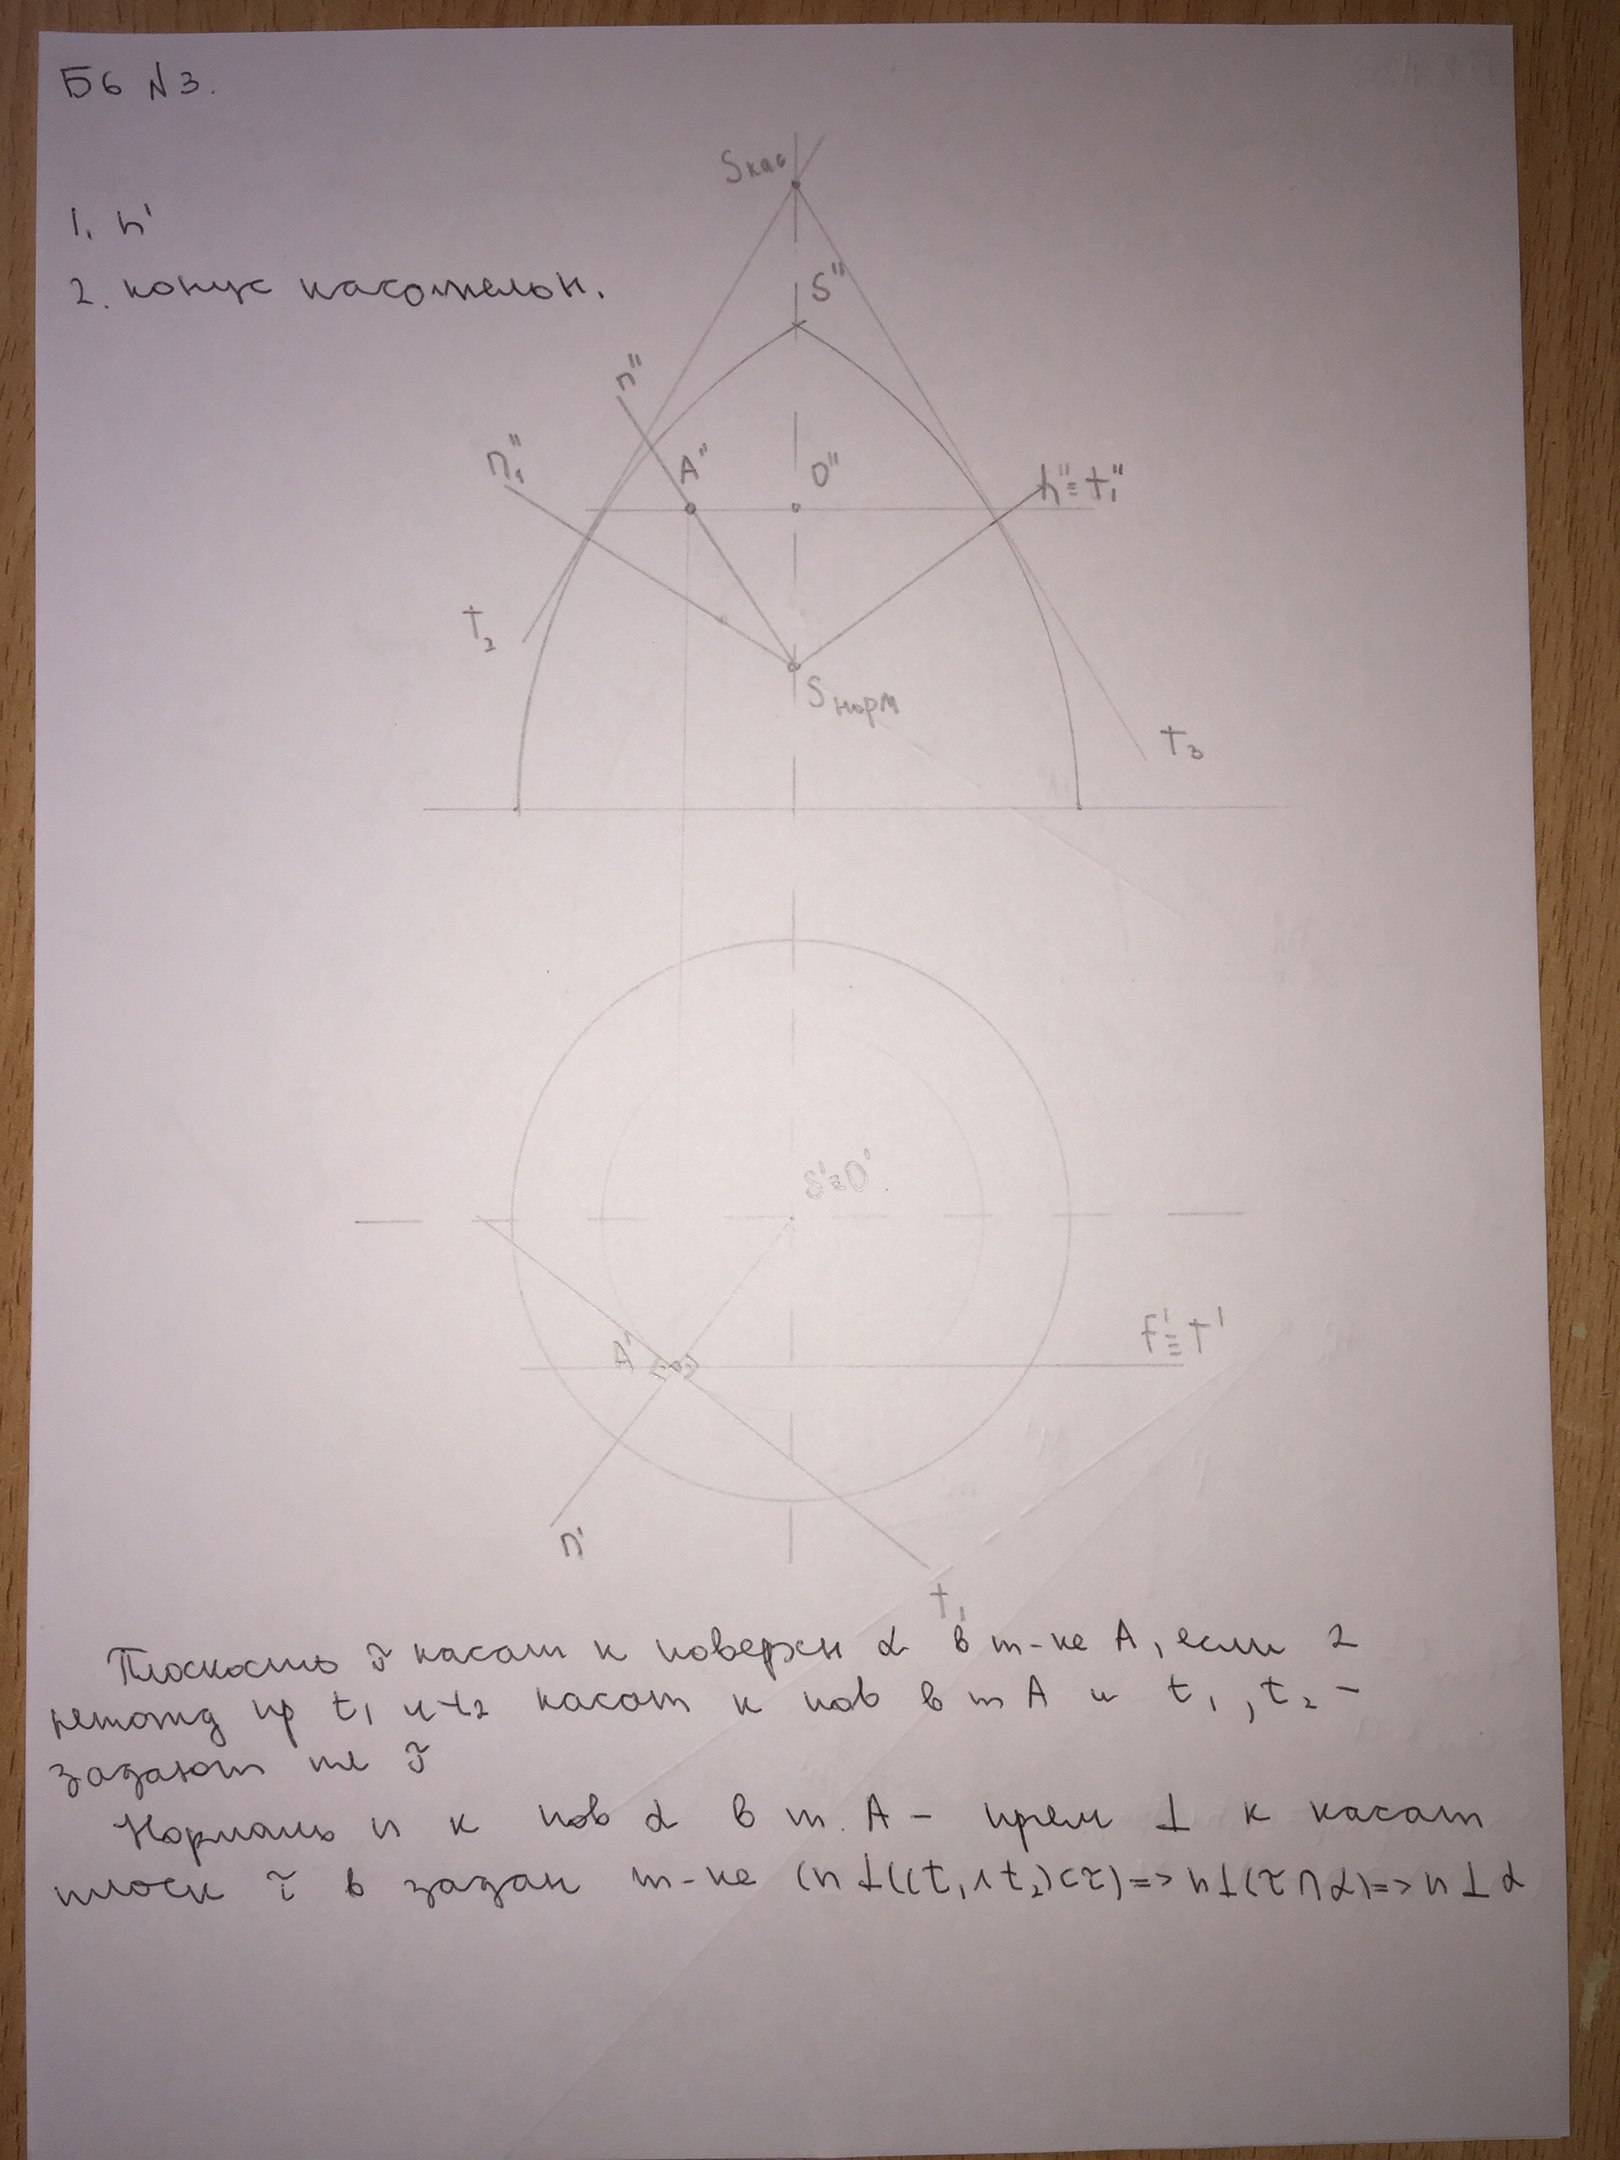 Б6 N3.
1. h'
2. конус касательн.
Sкас
S"
n"
n₁"
A"
O"
h"≡t₁"
t₂
Sнорм
t₃
S'≡O'
A'
f'≡t'
n'
t₁
Плоскость τ касат к поверхн α в т-ке A, если 2
пр t₁ и t₂ касат к пов в т A и t₁, t₂ –
задают пл τ
Нормаль n к пов α в т. A – прям ⊥ к касат
плоск τ в задан т-ке (n⊥((t₁∧t₂)⊂τ)=>n⊥(τ∩α)=>n⊥α